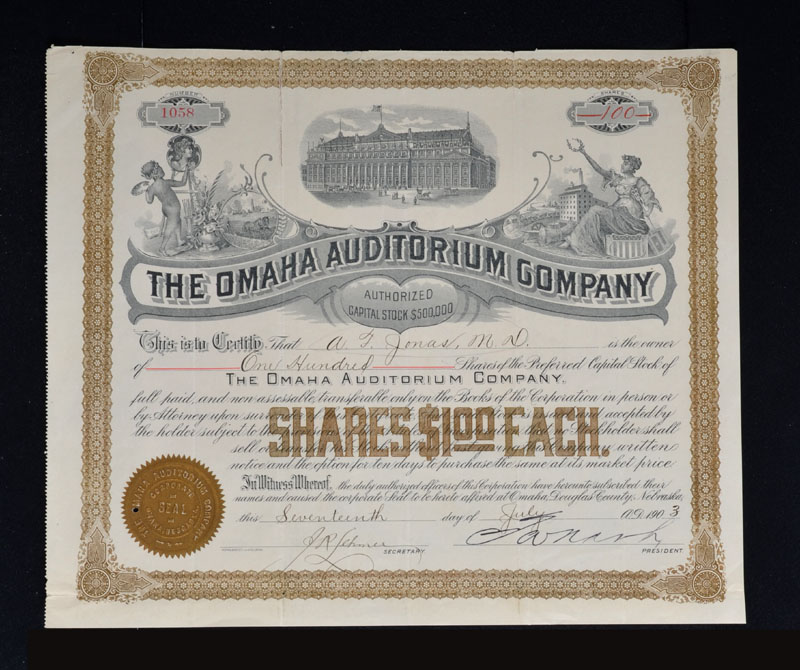 NUMBER
1058
SHARES
100
THE OMAHA AUDITORIUM COMPANY
AUTHORIZED
CAPITAL STOCK $500,000
This is to Certify, That A. F. Jonas, M.D. is the owner
of One Hundred Shares of the Preferred Capital Stock of
THE OMAHA AUDITORIUM COMPANY.
full paid, and non-assessable, transferable only on the Books of the Corporation in person or
by Attorney upon accepted by
the holder subject to the holder shall
SHARES $1.00 EACH.
sell or written
notice and the option for ten days to purchase the same at its market price
In Witness Whereof, the duly authorized officers of this Corporation have hereunto subscribed their
names and caused the corporate Seal to be hereto affixed at Omaha, Douglas County, Nebraska,
this Seventeenth day of July A.D. 1903
SECRETARY.
PRESIDENT.
OMAHA AUDITORIUM COMPANY
SEAL